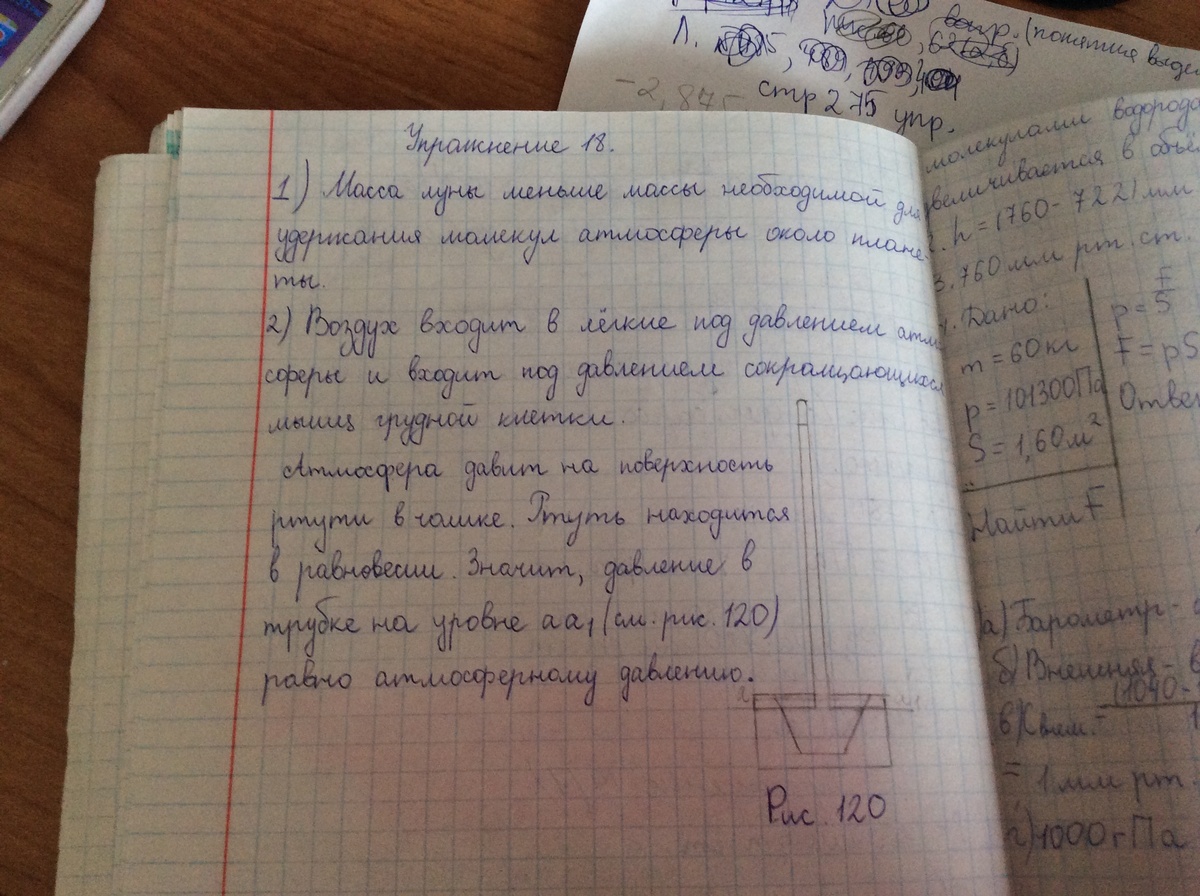 вопр. (понятия
Л.
-2,875 стр 275 упр.
Упражнение 18.
1) Масса луны меньше массы необходимой для
удержания молекул атмосферы около плане-
ты.
2) Воздух входит в лёгкие под давлением атмо
сферы и входит под давлением сокращающихся
мышц грудной клетки.
Атмосфера давит на поверхность
ртути в чашке. Ртуть находится
в равновесии. Значит, давление в
трубке на уровне аа₁ (см. рис. 120)
равно атмосферному давлению.
Рис. 120
молекулами водорода
увеличивается в объё
2. h = (760 - 722) мм
3. 760 мм рт. ст.
4. Дано:
m = 60 кг
p = 101300 Па
S = 1,60 м²
Найти F
p = F/S
F = pS
Ответ
а) Барометр -
б) Внешняя -
(1040 -
= 1 мм рт.
г) 1000 гПа